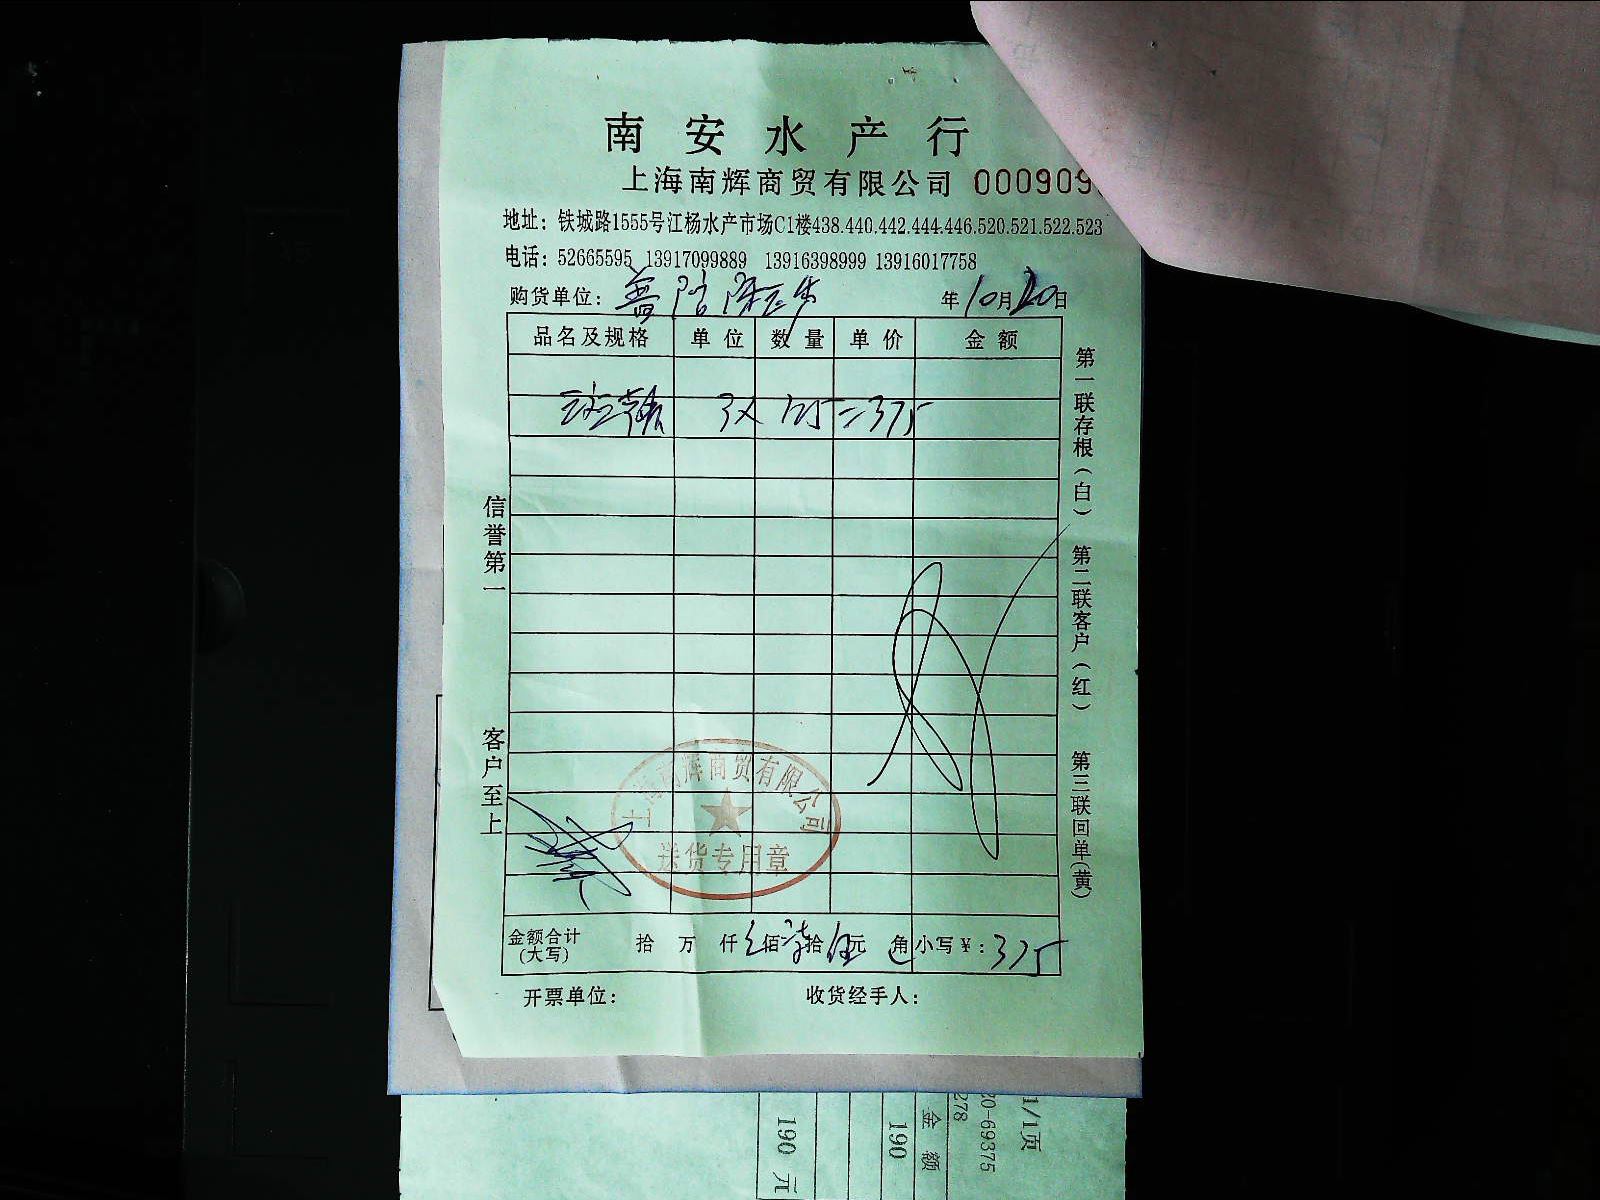 南安水产行
上海南辉商贸有限公司 000909
地址：铁城路1555号江杨水产市场C1楼438.440.442.444.446.520.521.522.523
电话：52665595 13917099889 13916398999 13916017758
购货单位：普陀 年10月20日
品名及规格 单位 数量 单价 金额
3× 125=375
信誉第一
客户至上
第一联存根（白）
第二联客户（红）
第三联回单（黄）
上海南辉商贸有限公司
送货专用章
金额合计（大写） 拾 万 仟 佰 拾 伍元 角 小写￥：375
开票单位： 收货经手人：
1/1页
20-69375
278
金额
190
190 元